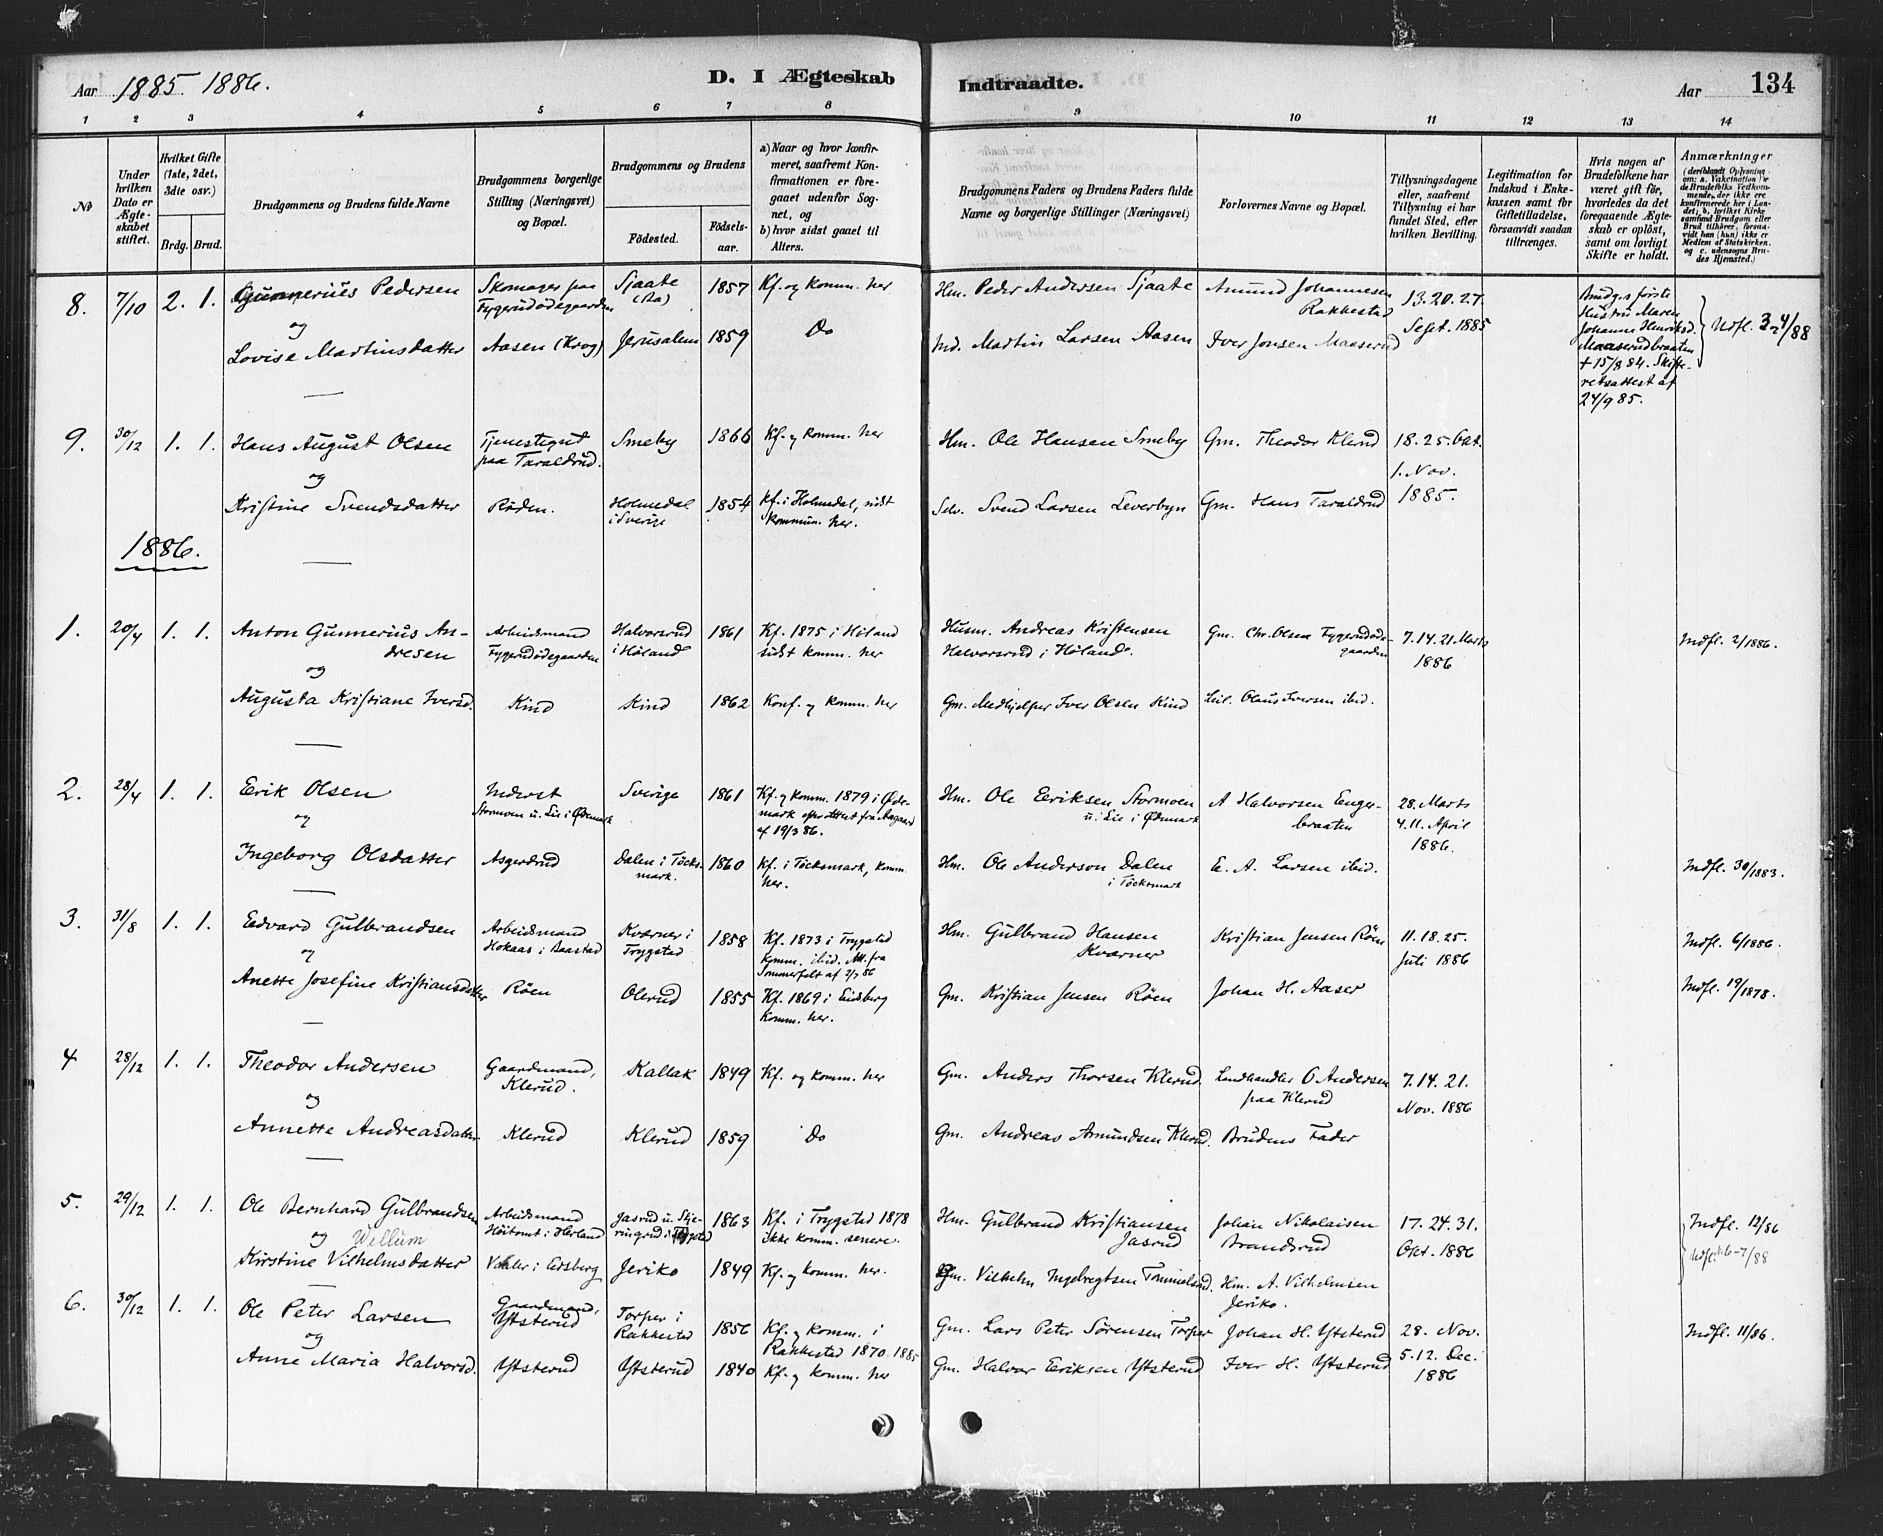 Aar 1885. 1886.
D. I Ægteskab Indtraadte.
Aar 134
1 2 3 4 5 6 7 8 9 10 11 12 13 14
No
Under hvilken Dato er Ægteskabet stiftet.
Hvilket Gifte (1ste, 2det, 3die osv.)
Brdg. Brud.
Brudgommens og Brudens fulde Navne
Brudgommens borgerlige Stilling (Næringsvei) og Bopæl.
Brudgommens og Brudens
Födested. Födselsaar.
a) Naar og hvor konfirmeret, saafremt Konfirmationen er foregaaet udenfor Sognet, og
b) hvor sidst gaaet til Alters.
Brudgommens Faders og Brudens Faders fulde Navne og borgerlige Stillinger (Næringsvei)
Forlovernes Navne og Bopæl.
Tillysningsdagene eller, saafremt Tillysning ei har fundet Sted, efter hvilken Bevilling.
Legitimation for Indskud i Enkekassen samt for Giftetilladelse, forsaavidt saadan tiltrænges.
Hvis nogen af Brudefolkene har været gift för, hvorledes da det foregaaende Ægteskab er oplöst, samt om lovligt Skifte er holdt.
Anmærkninger
8. 7/10 2. 1. Gunnerius Pedersen Skomager paa Fygerudødegaarden Sjaate (Aa) 1857 Kf. og komm. her Hm. Peder Andersen Sjaate Amund Johannesen Rakkestad 13. 20. 27. Sept. 1885 Brudg.s første Hustru Maren Johanne Henriksd. Maaserudbraaten + 15/8 84. Skifteretsattest af 24/9 85.
og
Lovise Martinsdatter Aasen (Krog) Jerusalem 1859 Do Ind. Martin Larsen Aasen Iver Jonsen Maaserud
9. 30/12 1. 1. Hans August Olsen Tjenestegut paa Taraldrud. Smeby 1866 Kf. og komm. her Hm. Ole Hansen Smeby Gm. Theodor Klerud 18. 25. Okt. 1. Nov. 1885.
og
Kristine Svendsdatter Røden. Holmedal i Sverige 1854 Kf. i Holmedal, sidst kommun. her. Selv. Svend Larsen Leverbyn Gm. Hans Taraldrud
1886.
1. 20/4 1. 1. Anton Gunnerius Andresen Arbeidsmand Fygerudødegaarden Halvorsrud i Høland 1861 Kf. 1875 i Høland sidst komm. her Husm. Andreas Kristensen Halvorsrud i Høland. Gm. Chr. Olsen Fygerudødegaarden 7. 14. 21. Marts 1886 Indfl. 2/1886.
og
Augusta Kristiane Iversd. Kind Kind 1862 Konf. og komm. her Gm. Medhjelper Iver Olsen Kind Olaus Iversen ibid.
2. 28/4 1. 1. Erik Olsen Inderst Stormoen u. Lie i Ødemark Sverige 1861 Kf. og komm. 1879 i Ødemark af 19/3 86. Hm. Ole Eriksen Stormoen u. Lie i Ødemark A Halvorsen Engerbraaten 28. Marts 4. 11. April 1886.
og
Ingeborg Olsdatter Asgerdrud Dalen i Töcksmark. 1860 Kf. i Töcksmark, komm. her. Hm. Ole Anderson Dalen i Töcksmark E. A. Larsen ibid. Indfl. 30/1883.
3. 31/8 1. 1. Edvard Gulbrandsen Arbeidsmand Hokaas i Baastad Kværner i Trygstad 1858 Kf. 1873 i Trygstad Komm. ibid. Att. fra Sommerfelt af 2/7 86 Hm. Gulbrand Hansen Kværner Kristian Jensen Røen 11. 18. 25. Juli 1886 Indfl. 6/1886.
og
Anette Josefine Kristiansdatter Røen Olerud 1855 Kf. 1869 i Eidsberg Komm. her. Gm. Kristian Jensen Røen Johan H. Aaser Indfl. 19/1878.
4 28/12 1. 1. Theodor Andersen Gaardmand, Klerud. Kallak 1849 Kf. og komm. her Gm. Anders Thorsen Klerud. Landhandler O Andersen paa Klerud 7. 14. 21. Nov. 1886
og
Annette Andreasdatter Klerud Klerud 1859 Do Gm. Andreas Amundsen Klerud. Brudens Fader
5. 29/12 1. 1. Ole Bernhard Gulbrandsen Arbeidsmand Høitomt i Herland Jasrud u. i Trygstad 1863 Kf. i Trygstad 1878 ikke komm. senere. Hm. Gulbrand Kristiansen Jasrud Johan Nikolaisen Brandsrud 17. 24. 31. Okt. 1886 Indfl. 12/86
og Willum
Kirstine Vilhelmsdatter Jeriko 1849 Kf. og komm. her. Gm. Vilhelm Ingebregtsen Hm. A. Vilhelmsen Jeriko. Udfl. 6-7/88
6. 30/12 1. 1. Ole Peter Larsen Gaardmand, Ytsterud Torper i Rakkestad 1856 Kf. og komm. i Rakkestad 1870. 1885 Gm. Lars Peter Sørensen Torper Johan H. Ytsterud 28. Nov. 5. 12. Dec. 1886 Indfl. 11/86.
og
Anne Maria Halvorsd. Ytsterud Ytsterud 1840 Kf. og komm. her Gm. Halvor Eriksen Ytsterud Iver H. Ytsterud